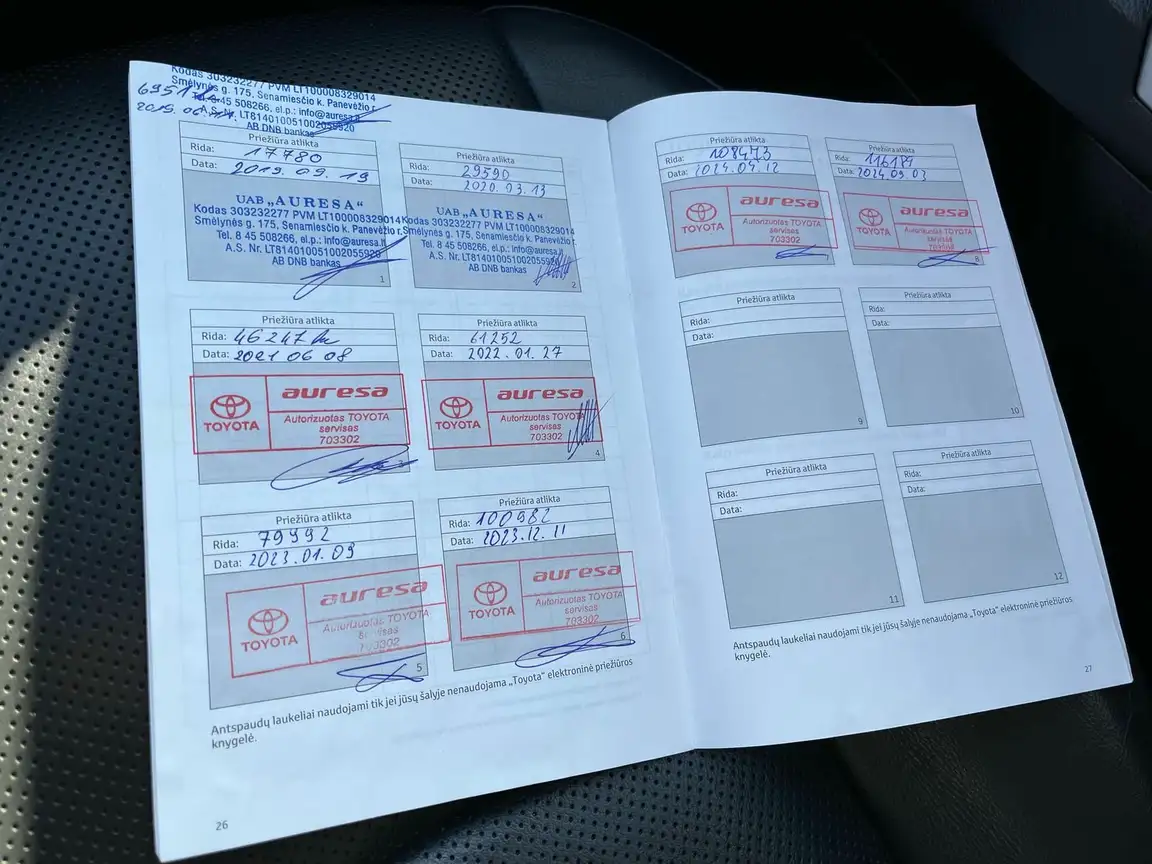 Kodas 303232277 PVM LT100008329014
Smėlynės g. 175, Senamiesčio k. Panevėžio r.
Tel. 8 45 508266, el.p.: info@auresa.lt
A.S. Nr. LT814010051002055920
AB DNB bankas
Priežiūra atlikta
Rida: 17780
Data: 2019.09.19
UAB „AURESA“
Kodas 303232277 PVM LT100008329014
Smėlynės g. 175, Senamiesčio k. Panevėžio r.
Tel. 8 45 508266, el.p.: info@auresa.lt
A.S. Nr. LT814010051002055920
AB DNB bankas
1
Priežiūra atlikta
Rida: 29590
Data: 2020.03.13
UAB „AURESA“
Kodas 303232277 PVM LT100008329014
Smėlynės g. 175, Senamiesčio k. Panevėžio r.
Tel. 8 45 508266, el.p.: info@auresa.lt
A.S. Nr. LT814010051002055920
AB DNB bankas
2
Priežiūra atlikta
Rida: 46247
Data: 2021 06 08
TOYOTA
auresa
Autorizuotas TOYOTA
servisas
703302
3
Priežiūra atlikta
Rida: 61252
Data: 2022.01.27
TOYOTA
auresa
Autorizuotas TOYOTA
servisas
703302
4
Priežiūra atlikta
Rida: 79992
Data: 2023.01.09
TOYOTA
auresa
Autorizuotas TOYOTA
servisas
703302
5
Priežiūra atlikta
Rida: 100982
Data: 2023.12.11
TOYOTA
auresa
Autorizuotas TOYOTA
servisas
703302
6
Antspaudų laukeliai naudojami tik jei jūsų šalyje nenaudojama „Toyota“ elektroninė priežiūros
knygelė.
26
Priežiūra atlikta
Rida: 108473
Data: 2024.04.12
TOYOTA
auresa
Autorizuotas TOYOTA
servisas
703302
Priežiūra atlikta
Rida: 116189
Data: 2024 09 03
TOYOTA
auresa
Autorizuotas TOYOTA
servisas
703302
8
Priežiūra atlikta
Rida:
Data:
9
Priežiūra atlikta
Rida:
Data:
10
Priežiūra atlikta
Rida:
Data:
11
Priežiūra atlikta
Rida:
Data:
12
Antspaudų laukeliai naudojami tik jei jūsų šalyje nenaudojama „Toyota“ elektroninė priežiūros
knygelė.
27